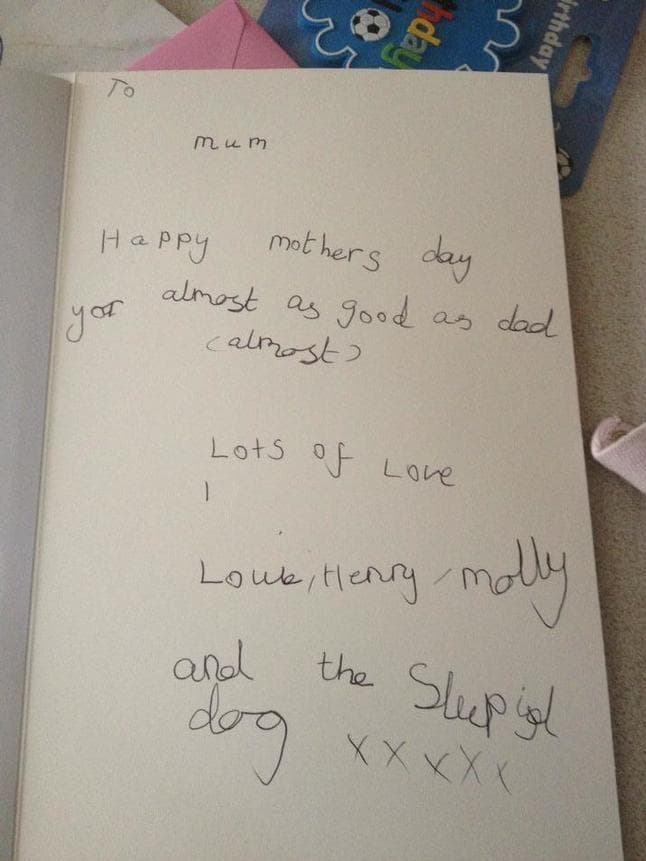 thday
irthday
To
mum
Happy mothers day
yor almost as good as dad
(almost)
Lots of Love
Henry, molly
and the
dog xxxxx